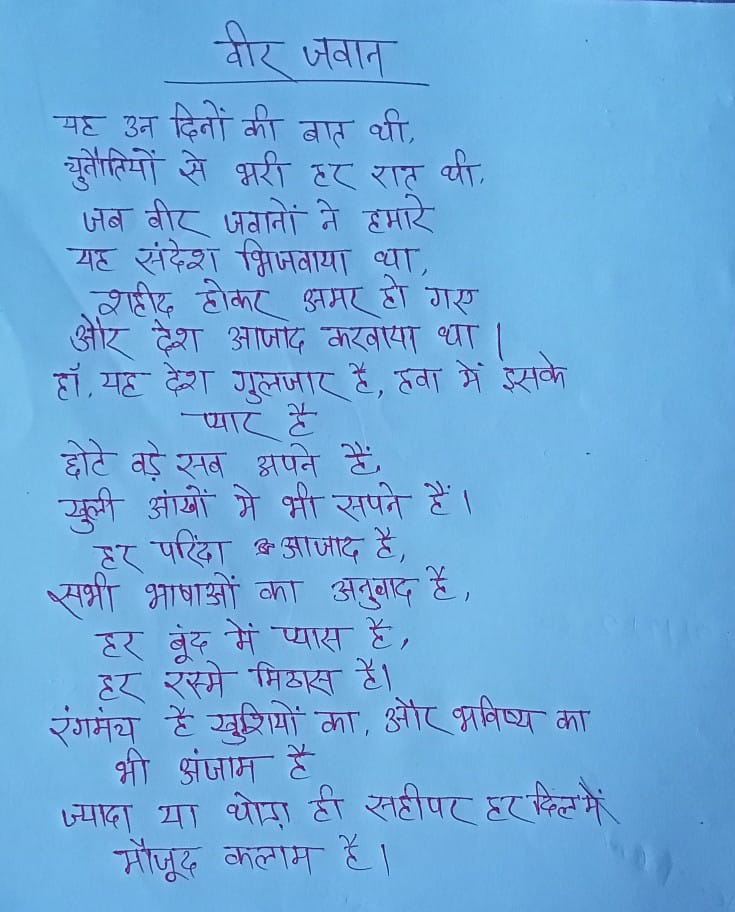 वीर जवान
यह उन दिनों की बात थी,
चुनौतियों से भरी हर रात थी,
जब वीर जवानों ने हमारे
यह संदेश भिजवाया था,
शहीद होकर अमर हो गए
और देश आजाद करवाया था।
हाँ, यह देश गुलजार है, हवा में इसके
प्यार है
छोटे बड़े सब अपने हैं,
खुली आंखों मे भी सपने हैं।
हर परिंदा आजाद है,
सभी भाषाओं का अनुवाद है,
हर बूंद में प्यास है,
हर रस्मे मिठास है।
रंगमंच है खुशियों का, और भविष्य का
भी अंजाम है
ज्यादा या थोड़ा ही सही पर हर दिल में
मौजूद कलाम है।